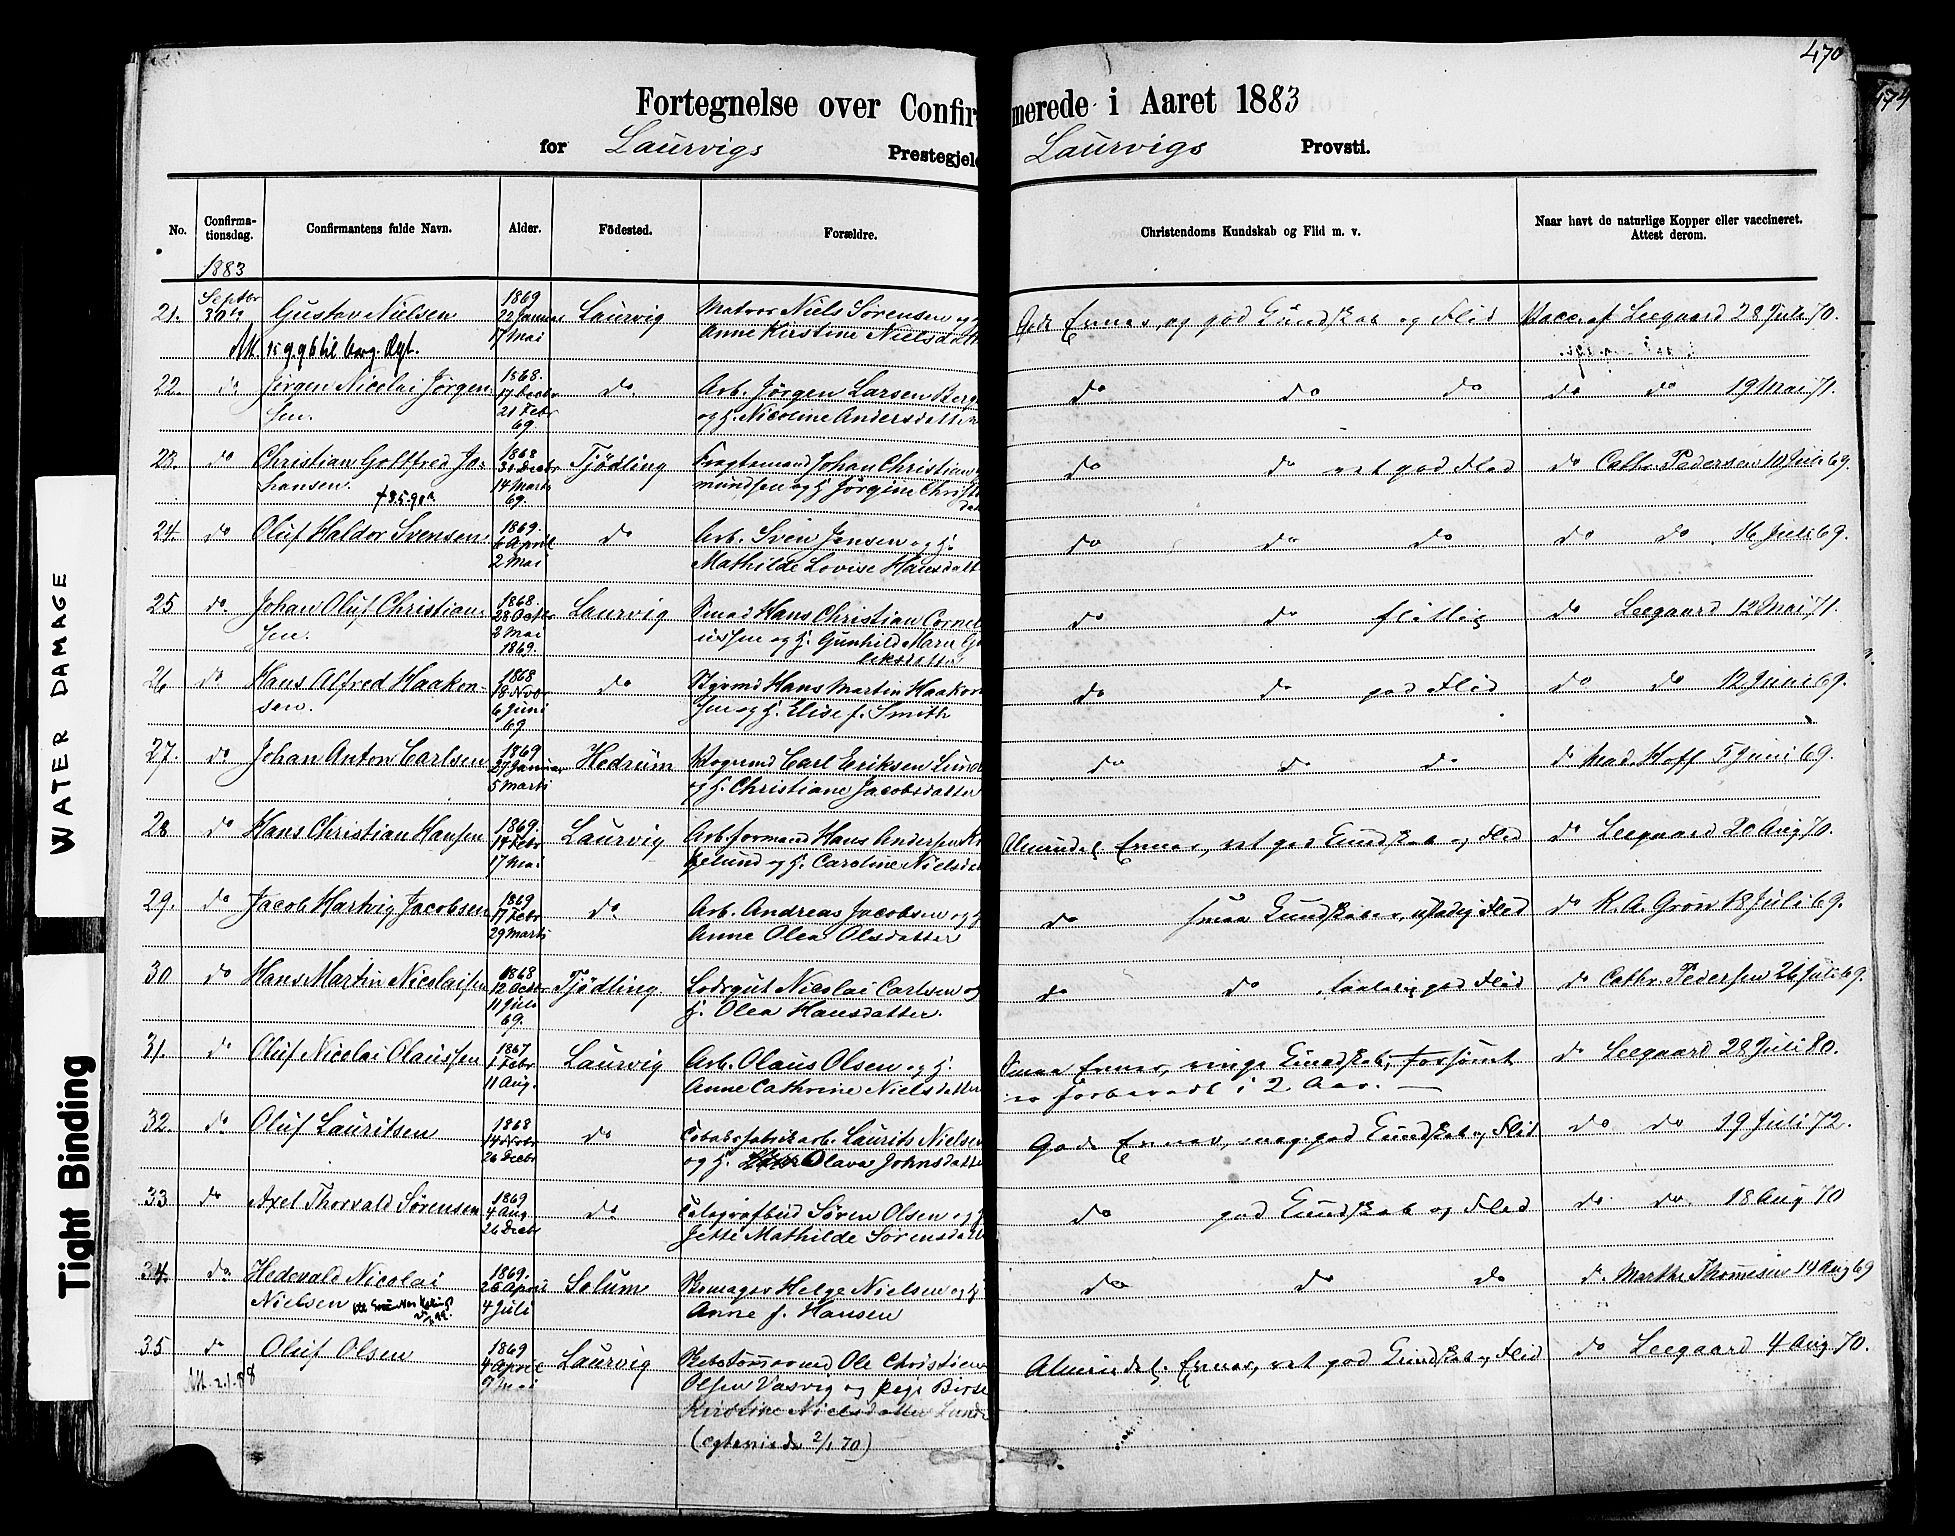 470
474
Fortegnelse over Confirmerede i Aaret 1883
for Laurvigs Prestegjeld Laurvigs Provsti.
No. Confirma-tionsdag. Confirmantens fulde Navn. Alder. Födested. Forældre. Christendoms Kundskab og Flid m. v. Naar havt de naturlige Kopper eller vaccineret. Attest derom.
1883
21. Septbr 30te Gustav Nielsen 1869 22 Januar 17 Mai Laurvig Matros Niels Sörensen og
Anne Kirstine Nielsdatt Gode Evner, og god Kundskab og Flid Vacc. af Leegaard 28 Juli 70.
Att. 15.9.96 til borg. Vgt.
22. do Jörgen Nicolai Jörgen-
sen. 1868. 17 Decbr 21 Febr 69. do. Arb. Jörgen Larsen Berg
og H. Nicoline Andersdatter do do do do do 19 Mai 71.
23. do Christian Gottfred Jo-
hansen. 1868 31 Decbr 14 Marts 69. Tjödling Fragtemand Johan Christian
mundsen og H. Jörgine Christ
dat do do ret god Flid do Cathr. Pedersen 10 Juli 69.
24. do Oluf Haldor Svensen 1869. 6 April 2 Mai do Arb. Sven Jensen og H.
Mathilde Lovise Hansdatt do do do do do 16 Juli 69.
25 do. Johan Oluf Christian-
sen. 1868. 28 Octbr 2 Mai 1869. Laurvig Smed Hans Christian Cornel
iussen og H. Gunhild Marie G
leksdatter do do flittig do Leegaard 12 Mai 71.
26 do Hans Alfred Haaken-
sen. 1868 18 Nvbr 6 Juni 69. do Styrmd Hans Martin Haaken
sen og H. Elise f. Smith do do god Flid do do 12 Juni 69.
27. do Johan Anton Carlsen 1869 27 Januar 5 Marts Hedrum Vognmd Carl Eriksen Lund
og H. Christiane Jacobsdatter do do do do Mad. Hoff 5 Juni 69.
28 do Hans Christian Hansen 1869. 14 Febr 17 Mai Laurvig Arb.formand Hans Andersen
lund og H. Caroline Nielsdat Almindel. Evner, ret god Kundskab og Flid do Leegaard 20 Aug 70.
29. do Jacob Hartvig Jacobsen 1869 17 Febr 29 Marts do Arb. Andreas Jacobsen og H
Anne Olea Olsdatter do smaa Kundskaber, Flid do K. A. Grön 18 Juli 69.
30 do Hans Martin Nicolaisen 1868 12 Octbr 11 Juli 69. Tjödling Lodsgut Nicolai Carlsen og
H. Olea Hansdatter. do do taalelig god Flid do Cathr. Pedersen 26 Juli 69.
31. do Oluf Nicolai Olaussen 1867 1 Febr 11 Aug. Laurvig Arb. Olaus Olsen og H.
Anne Cathrine Nielsdatter Smaa Evner, ringe Kundskab, forsömt
er forberedt i 2 Aar. do Leegaard 28 Juli 80.
32. do Oluf Lauritsen 1868 14 Nvbr 26 Decbr do Tobaksfabrikarb. Laurits Nielsen
og H. Olava Johnsdatte Gode Evner, meg. god Kundskab og Flid do do 19 Juli 72.
33 do Axel Thorvald Sörensen 1869 4 Aug 26 Decbr do Telegrafbud Sören Olsen og H
Jette Mathilde Sörensdatt do god Kundskab og Flid do do. 18 Aug 70
34. do Hedevald Nicolai
Nielsen 1869. 26 April 4 Juli Solum Skomager Helge Nielsen og H
Anne f. Hansen do do do do. Marthe Thomesen 14 Aug 69
35 do Oluf Olsen 1869 4 April 9 Mai Laurvig Skibstömmermd Ole Christian
Olsen Vasvig og Pige Birte
Kirstine Nielsdatter Lund
(ægteviede 2/1 70) Almindel. Evner, ret god Kundskab og Flid do Leegaard 4 Aug 70.
Att. 2.1.88
WATER DAMAGE
Tight Binding